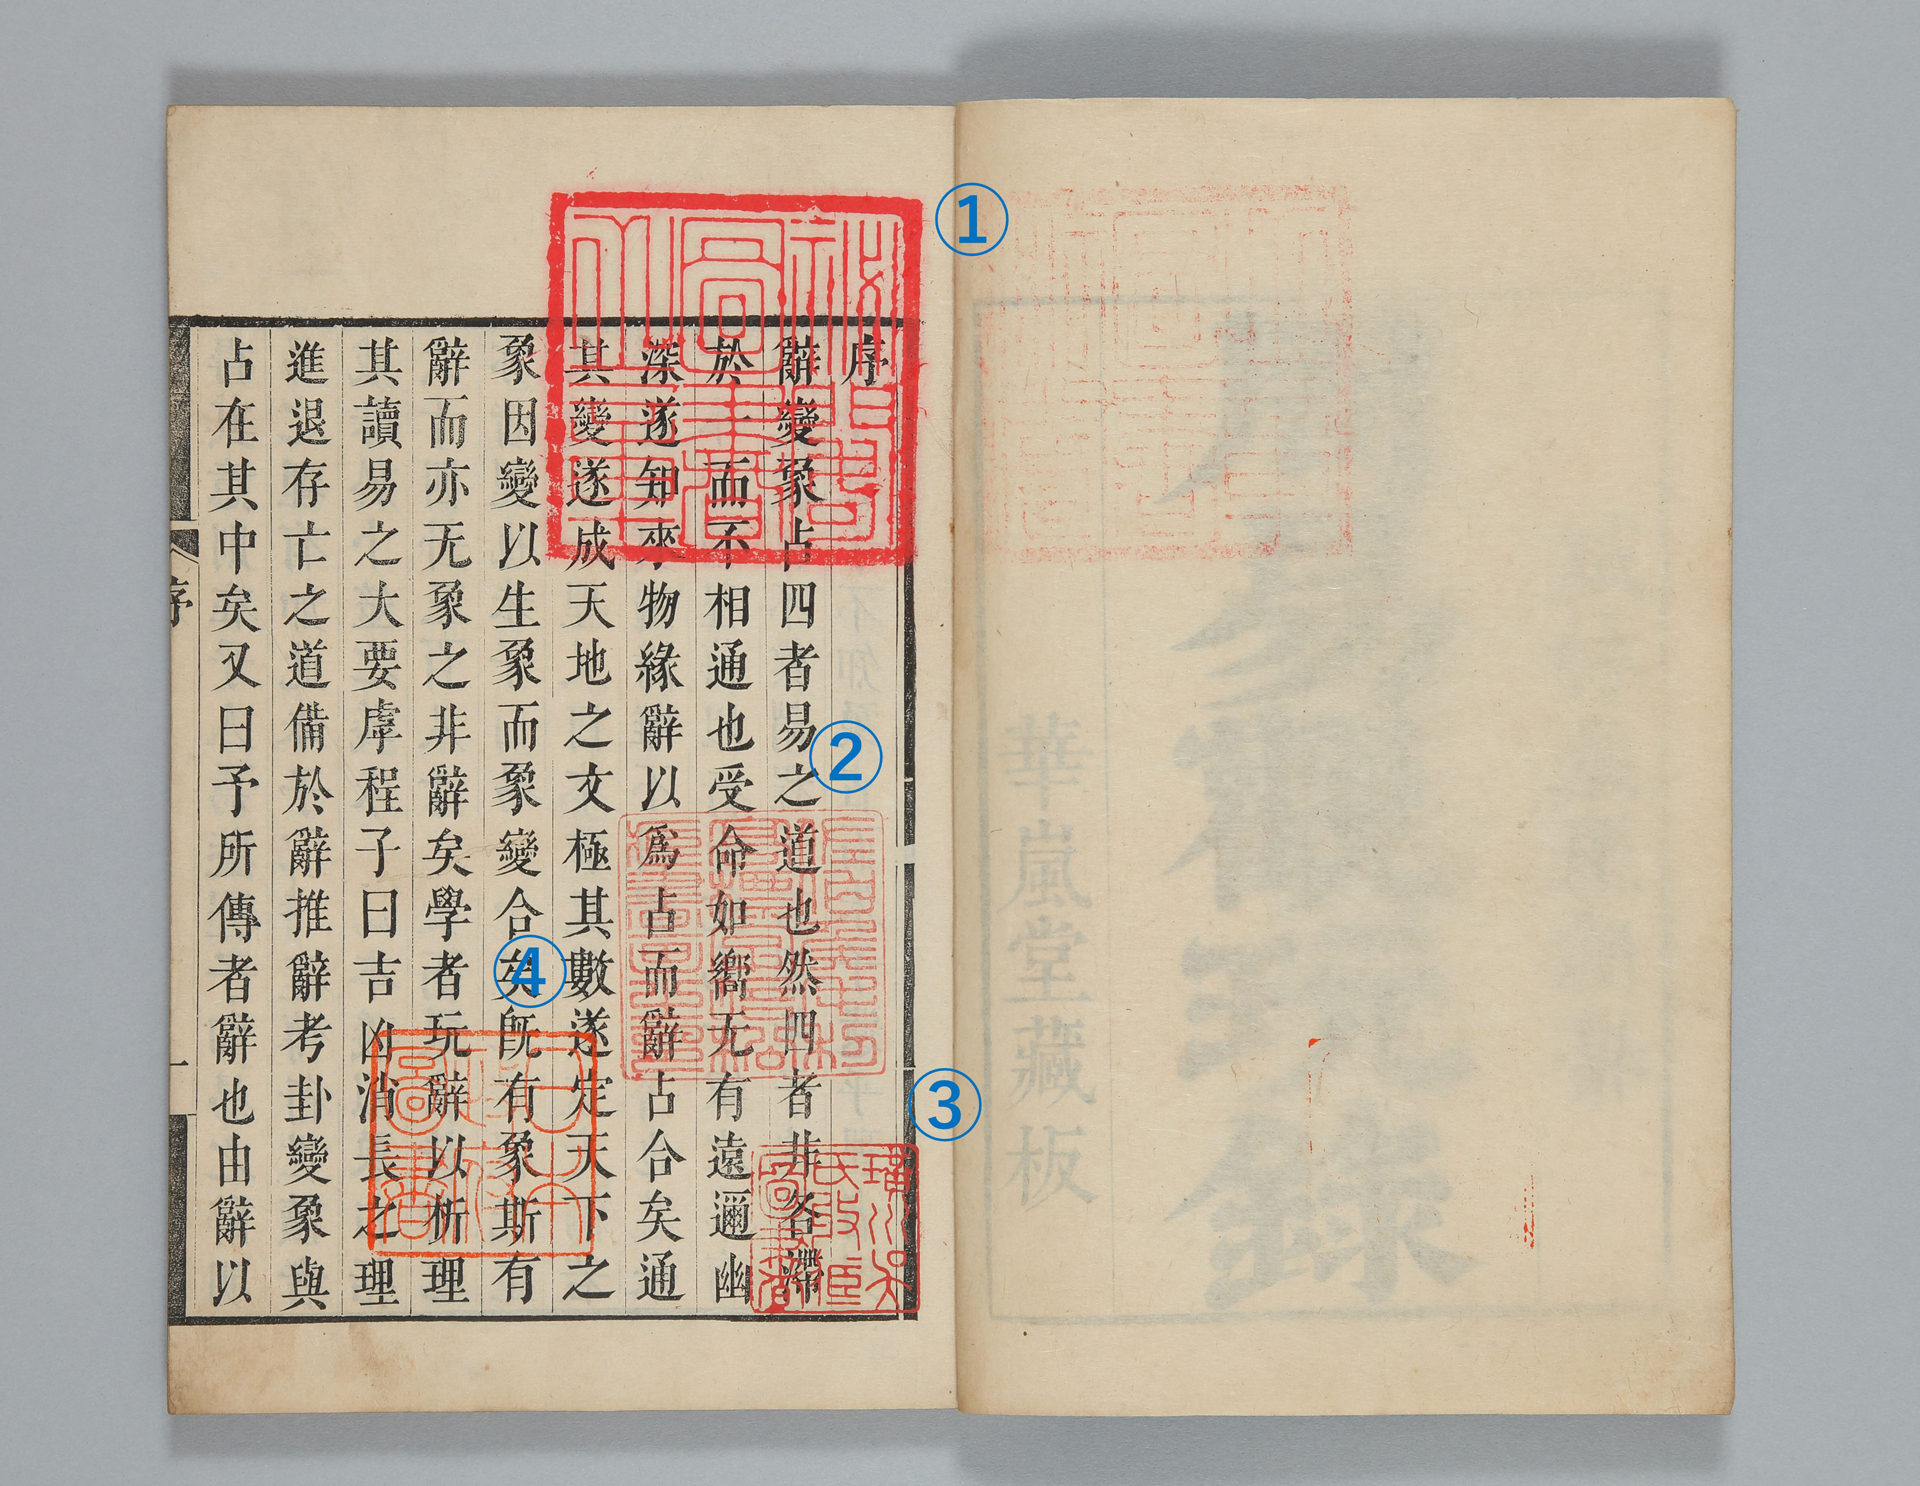 ①
序
辭變象占四者易之道也然四者非各滯
於一而不相通也受命如嚮无有遠邇幽
深遂知來物緣辭以爲占而辭占合矣通
其變遂成天地之文極其數遂定天下之
象因變以生象而象變合矣旣有象斯有
辭而亦无象之非辭矣學者玩辭以析理
其讀易之大要虖程子曰吉凶消長之理
進退存亡之道備於辭推辭考卦變象與
占在其中矣又曰予所傳者辭也由辭以
序
一
②
③
璜川吳氏收藏圖書
④
日本政府圖書
華嵐堂藏板